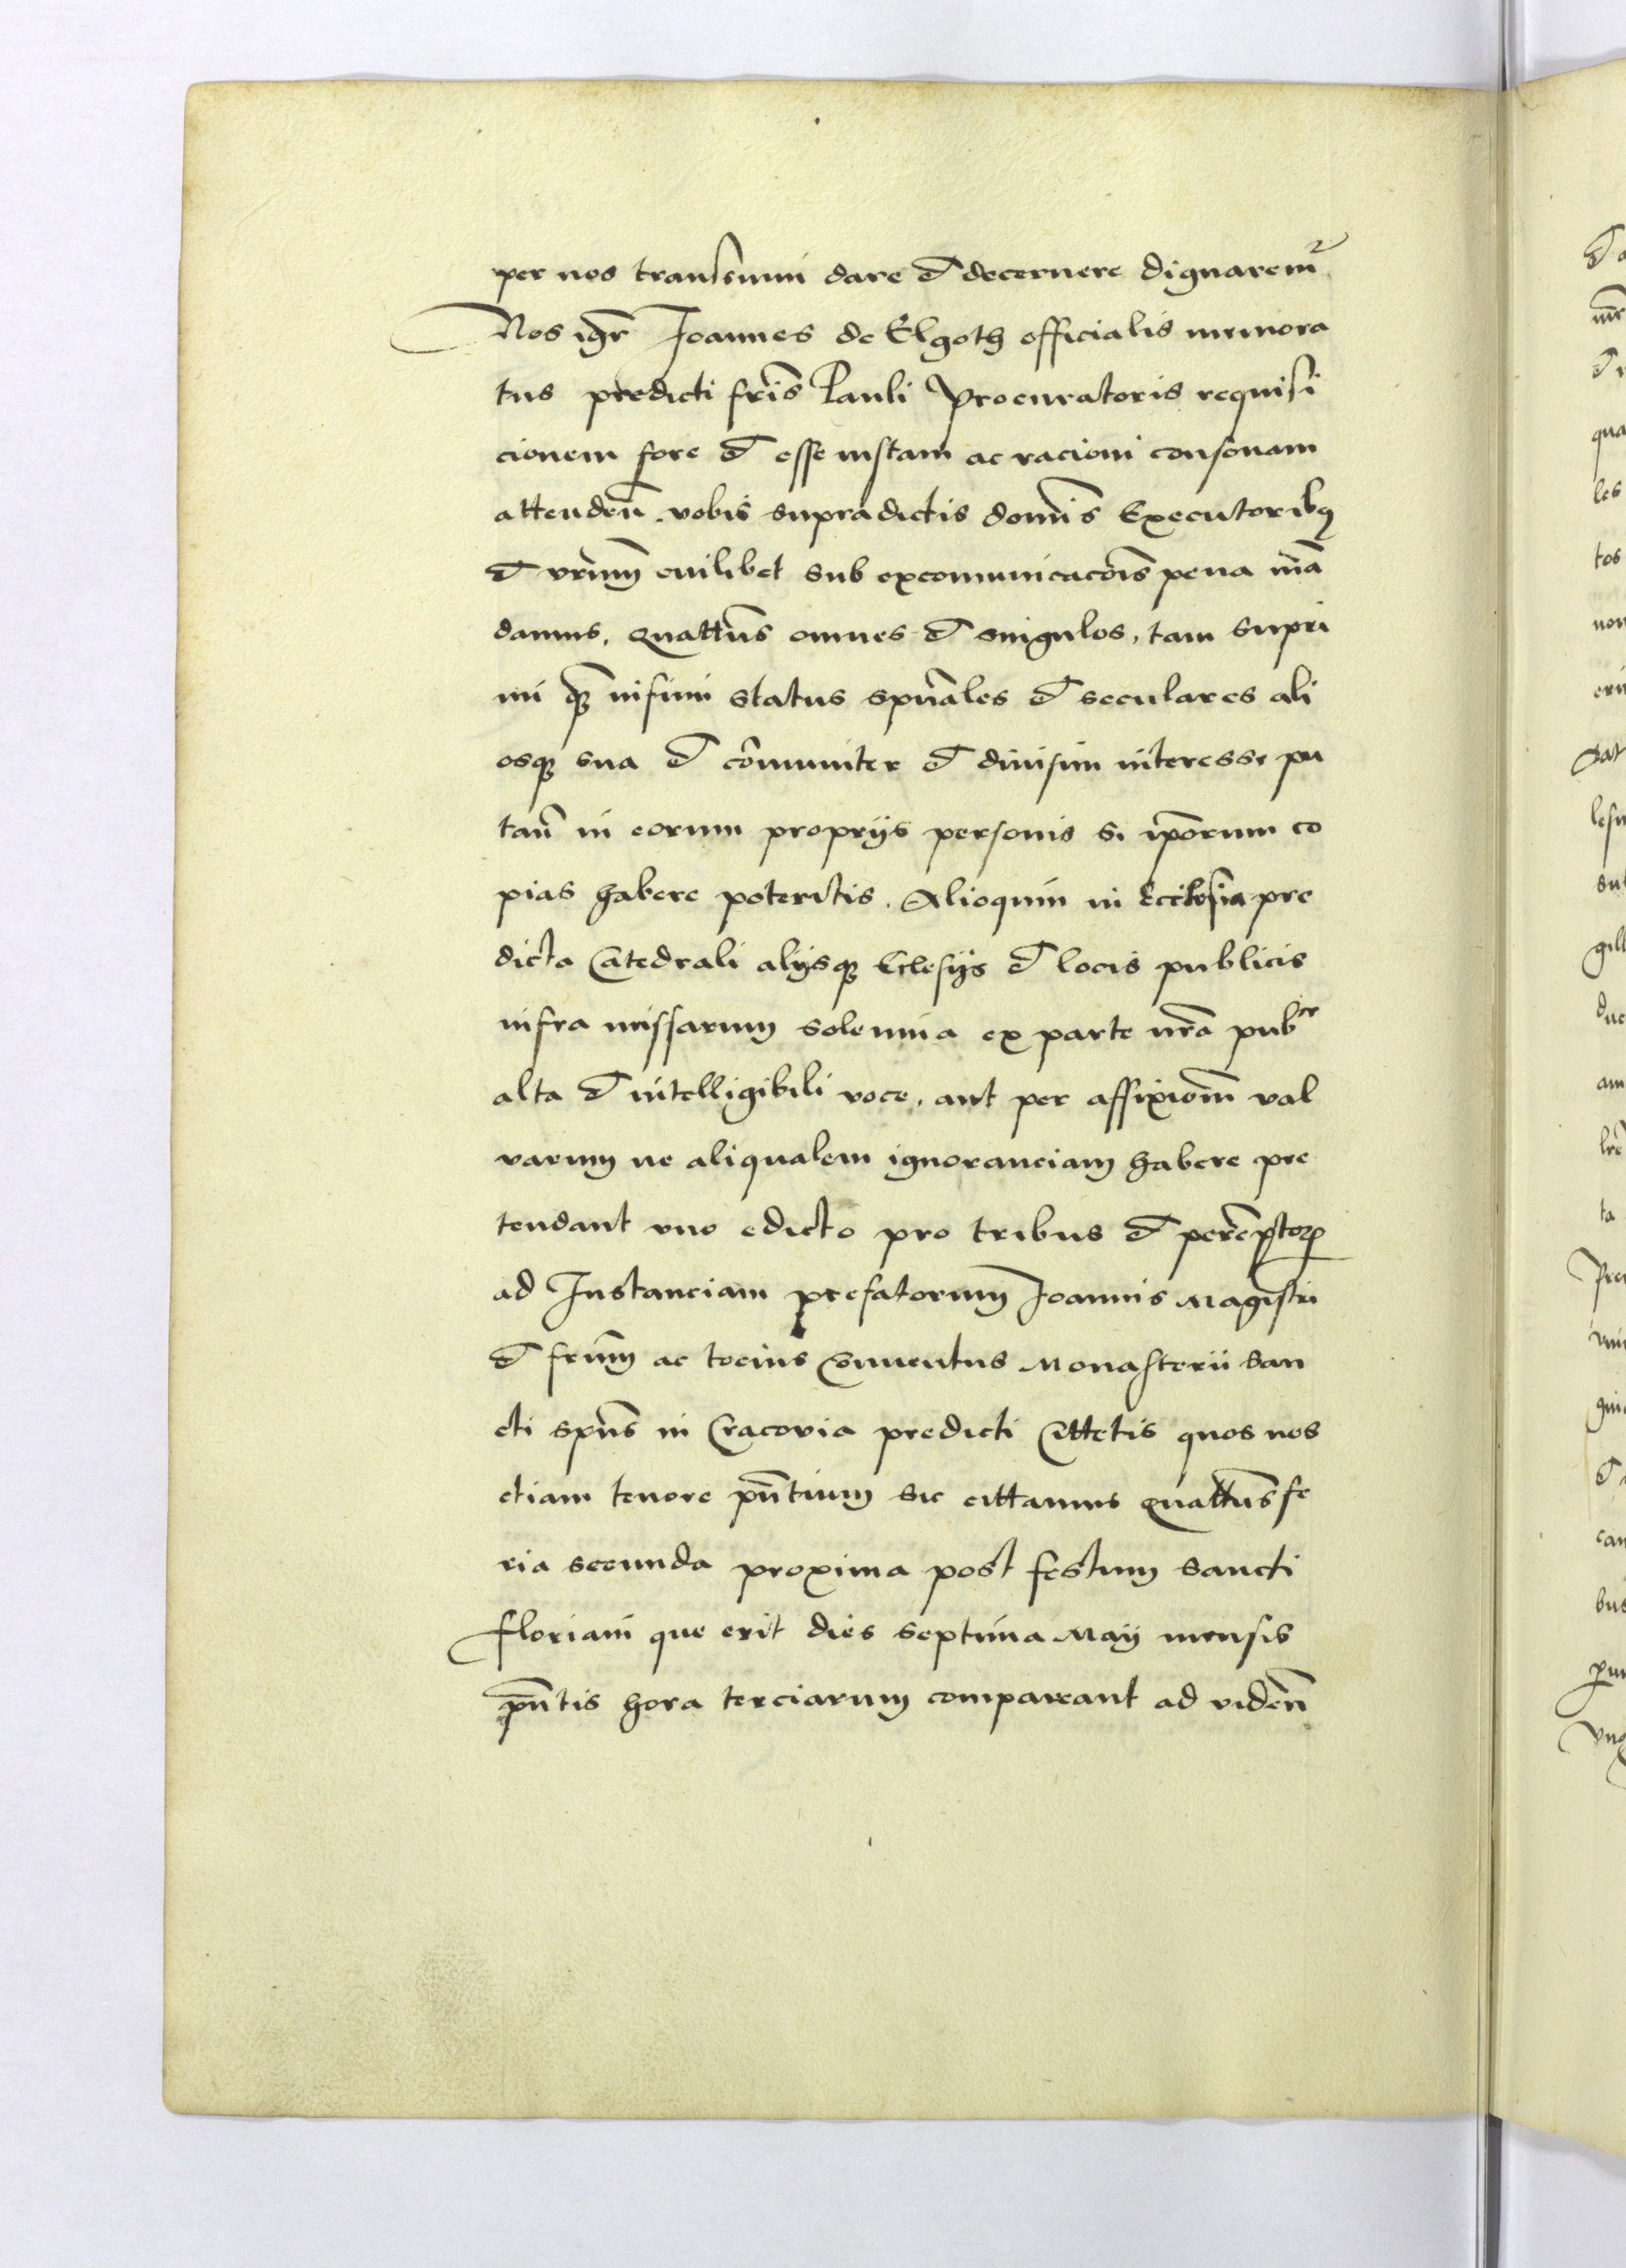 per nos transsumi dare et decernere dignarem̃
Nos igr̃ Joannes de Elgoth officialis memora
tus predicti fr̃is Pauli Procuratoris requisi
cionem fore et esse iustam ac racioni consonam
attendeñ. vobis supradictis domĩs Executoribꝫ
et vr̃um cuilibet sub excomunicacõis pena mã
damus, quatt̃us omnes et singulos, tam supri
mi q̃ꝫ infimi status spũales et seculares ali
osqꝫ sua et cõmuniter et diuisim interesse pu
tañ in eorum proprijs personis si ip̃orum co
pias habere poteritis. Alioquin in Ecclesia pre
dicta Catedrali alijsqꝫ Ecclesijs et locis publicis
infra missarum solennia ex parte nr̃a pub^ce
alta et intelligibili voce, aut per affixiom̃ val
varum ne aliqualem ignoranciam habere pre
tendant vno edicto pro tribus et perẽptorꝫ
ad Instanciam prefatorum Joannis Magistri
et fr̃um ac tocius Conuentus Monasterii San
cti spũs in Cracovia predicti Cittetis quos nos
etiam tenore pñtium sic cittamus quatt̃us fe
ria secunda proxima post festum Sancti
Floriani que erit dies septima Maij mensis
pñtis hora terciarum compareant ad videñ